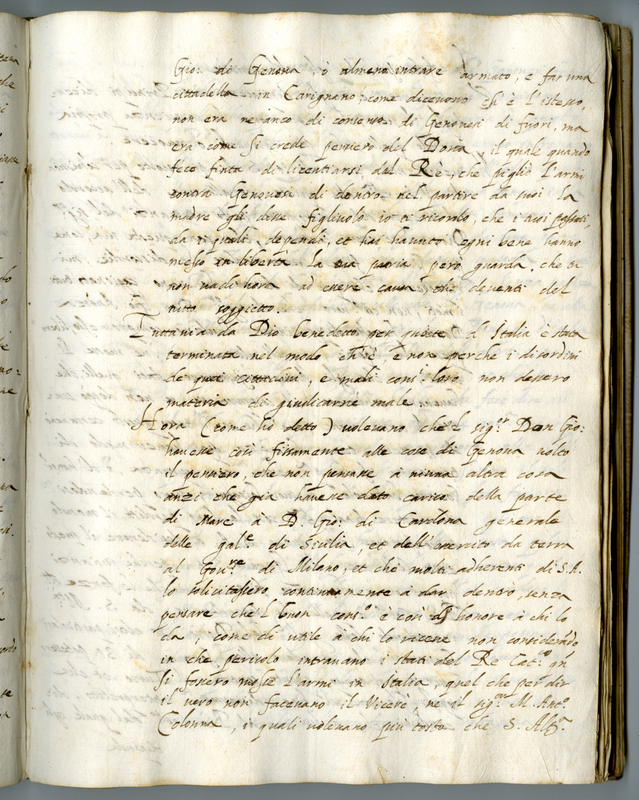 Gio: di Genova, ò almeno intrare armato, e far una
cittadella in Carignano, come dicevono ch'è l'istesso,
non era ne anco di consenso di Genovesi di fuori, ma
era come si crede pensiero del Doria, il quale quando
fece finta di licentiarsi dal Rè, che pigliò l'armi
contra Genovesi di dentro nel partire da suoi la
madre gli disse figliuolo io ti ricordo, che i tuoi passati
da i quali dependi, et hai havuto ogni bene hanno
messo in libertà la sua patria, però guarda, che tu
non vadi hora ad essere causa, che deventi del
tutto soggietta.
Tuttavia da Dio benedetto per quiete d'Italia è stata
terminata nel modo ch'si è non perche i disordini
de quei cittadini, e mali cons.i loro non dessero
materia di giudicarne male.
Hora (come hò detto) volevano che'l sig.r Don Gio:
havesse così fissamente alle cose di Genova volto
il pensiero, che non pensasse à niuna altra cosa
anzi che già havesse dato carico della parte
di Mare à D. Gio: di Cardona generale
delle gal.e di Sicilia, et dell'esercito da terra
al Gov.re di Milano, et che molti adherenti di S. A.
lo solicitassero continuamente à dar dentro, senza
pensare che'l buon cons.o è così d'honore à chi lo
dà, come di utile à chi lo riceve non considerādo
in che pericolo intravano i stati del Re Cat.co qn
si fossero mosse l'armi in Italia, quel che per dir
il vero non facevano il Vicere, ne il sig.r M. Ant.o
Colonna, i quali volevano più tosto che S. Alt.a